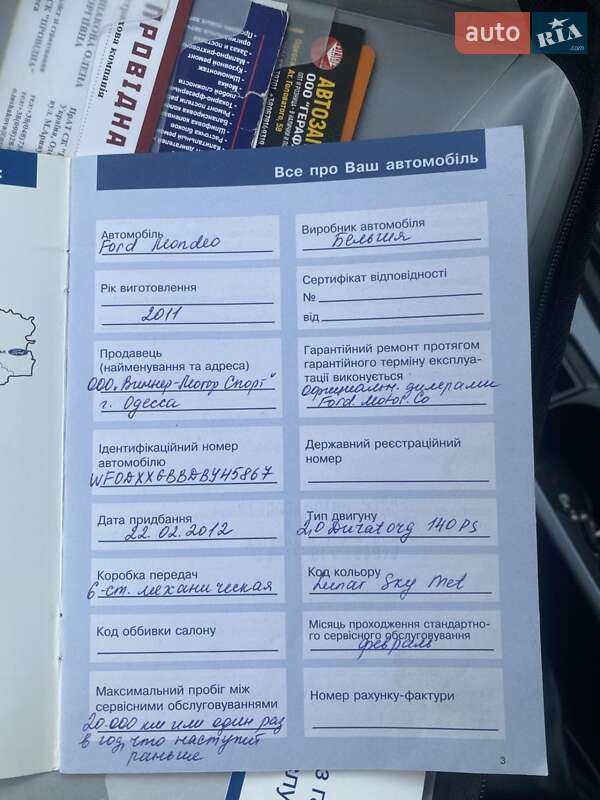 auto RIA
.com
ПРОВІДНА
хова компанія
АВТОЗАП
ООО "ГЕРАФ
Все про Ваш автомобіль
Автомобіль
Ford Mondeo
Виробник автомобіля
Бельгия
Рік виготовлення
2011
Сертифікат відповідності
№
від
Продавець
(найменування та адреса)
ООО „Виннер-Мотор Спорт"
г. Одесса
Гарантійний ремонт протягом
гарантійного терміну експлуа-
тації виконується
официальн. дилерами
Ford. Motor. Co
Ідентифікаційний номер
автомобілю
WF0DXXGBBDBY45867
Державний реєстраційний
номер
Дата придбання
22.02.2012
Тип двигуну
2,0 Duratorg 140 PS
Коробка передач
6-ст. механическая
Код кольору
Lunar Sky Met
Код оббивки салону
Місяць проходження стандартно-
го сервісного обслуговування
февраль
Максимальний пробіг між
сервісними обслуговуваннями
20.000 км или один раз
в год, что наступит
раньше
Номер рахунку-фактури
3